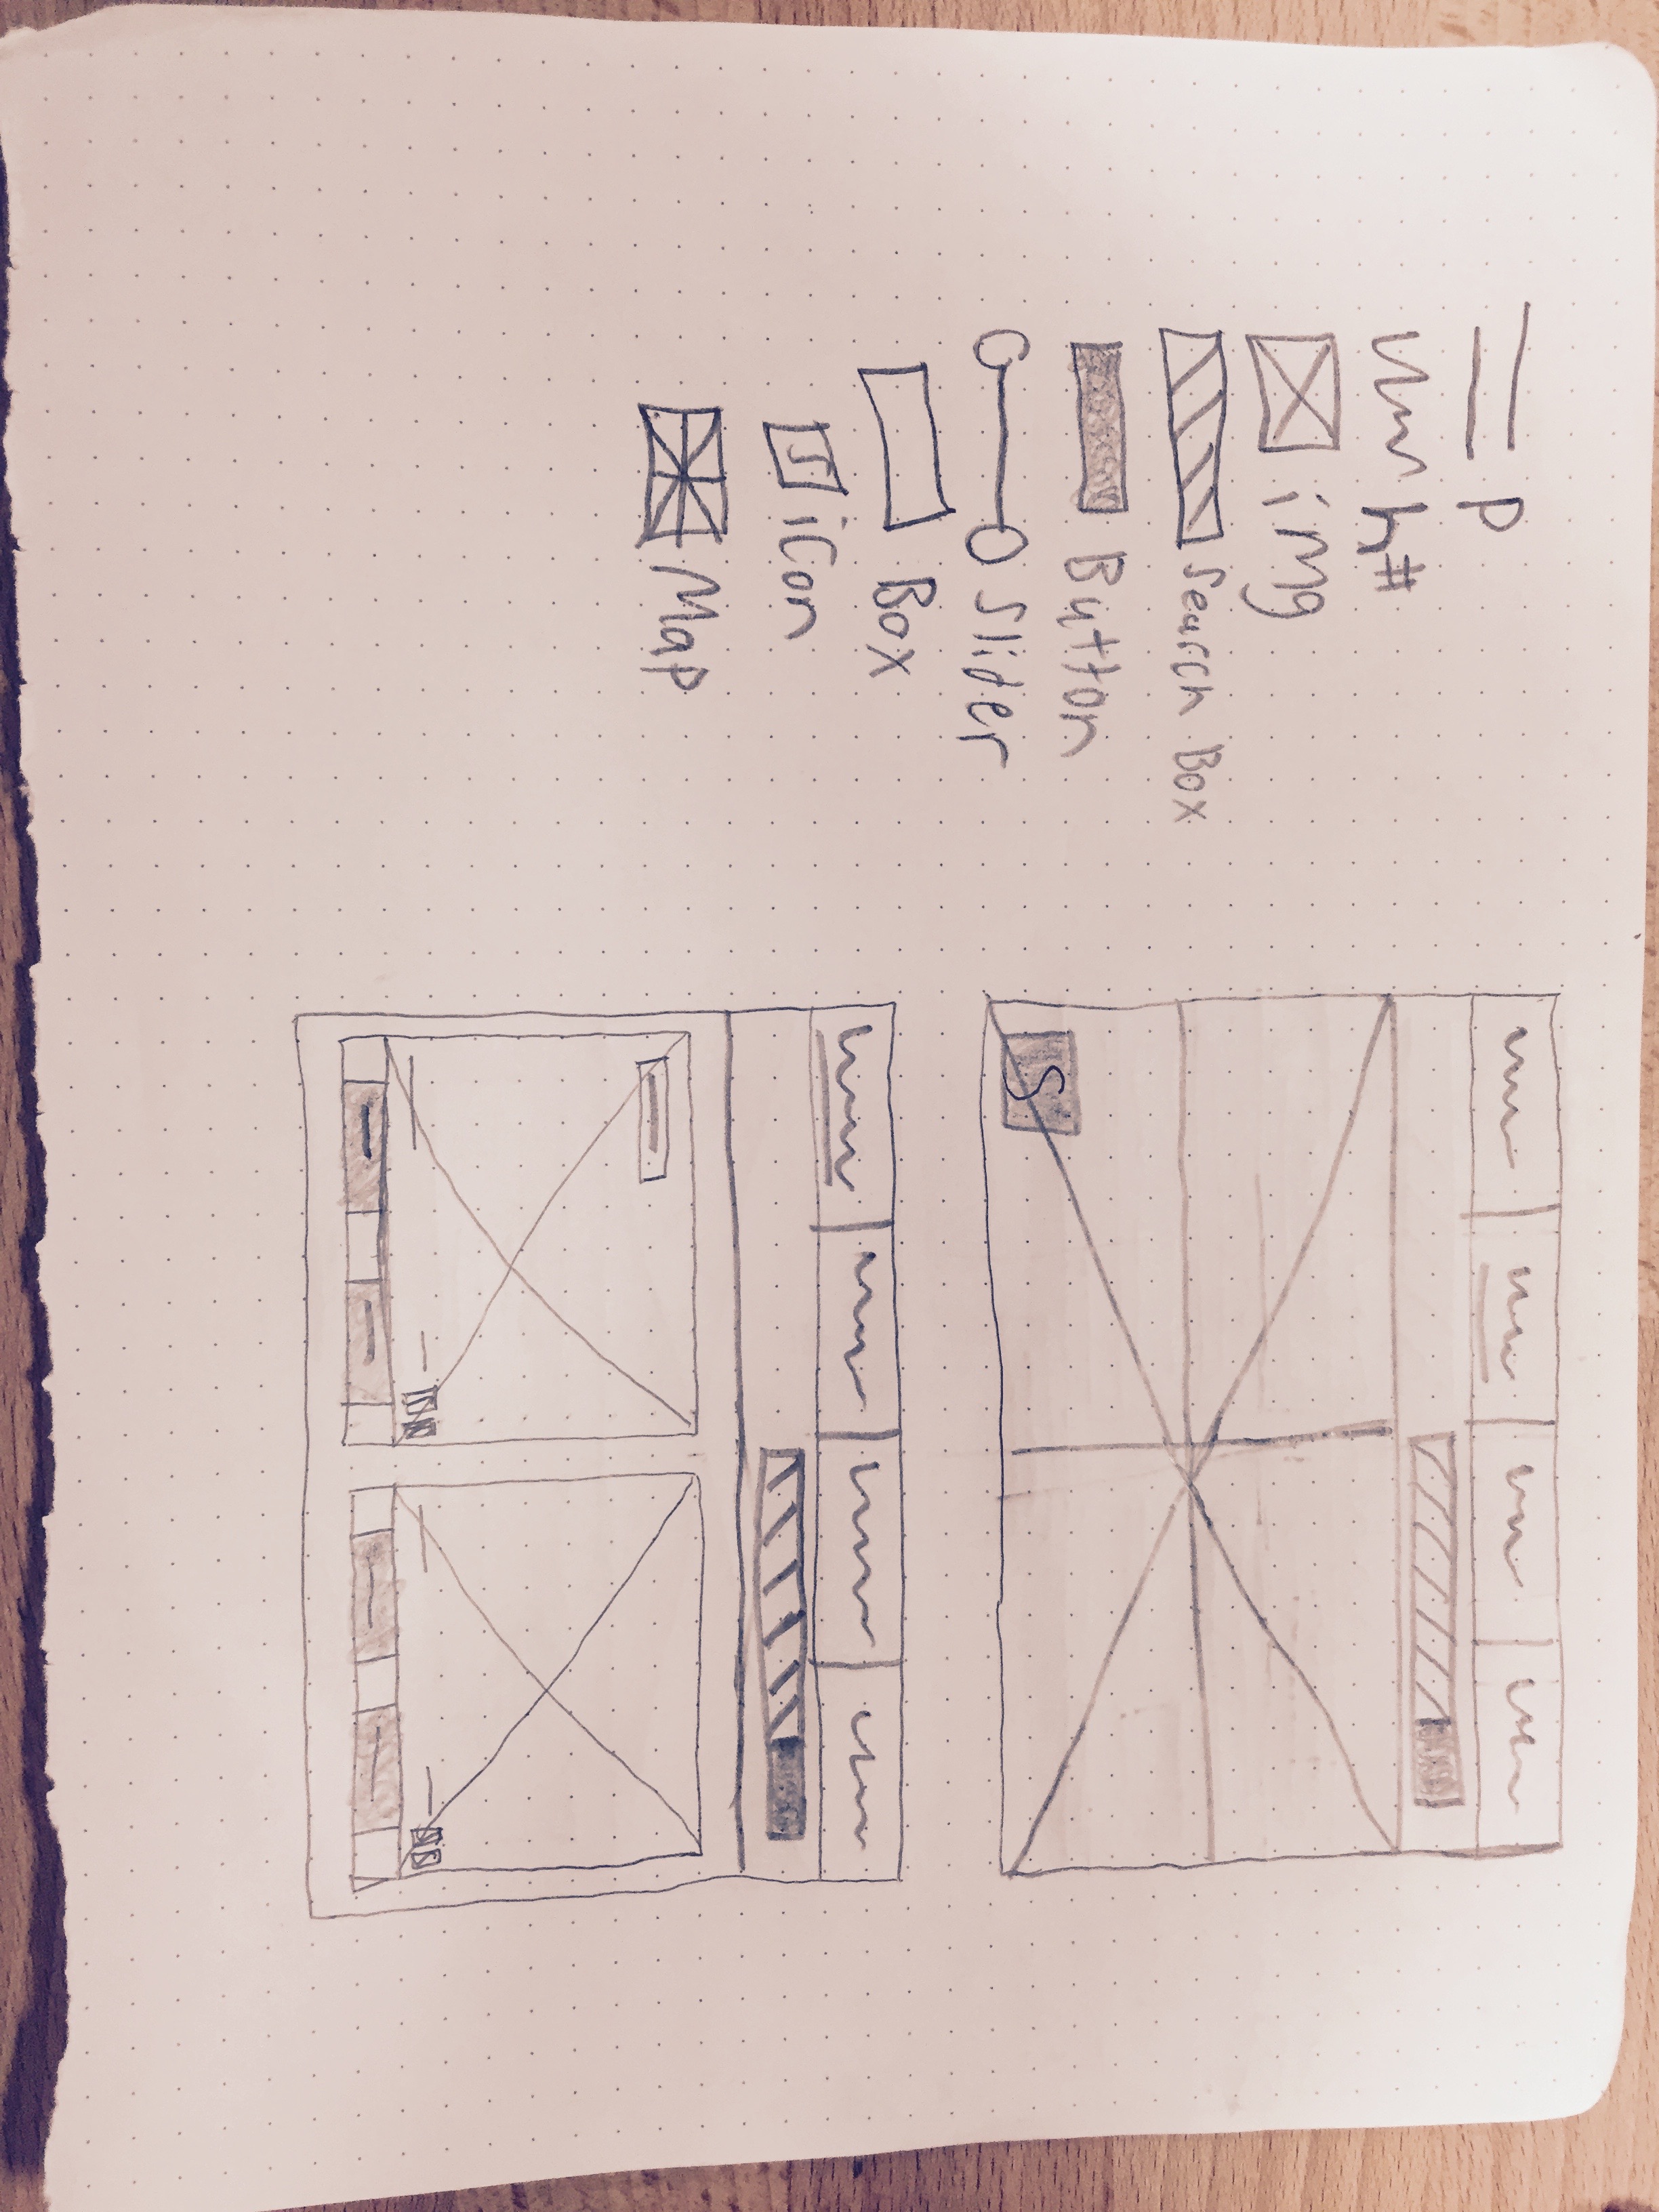 P
h#
img
Search Box
Button
Slider
Box
icon
Map